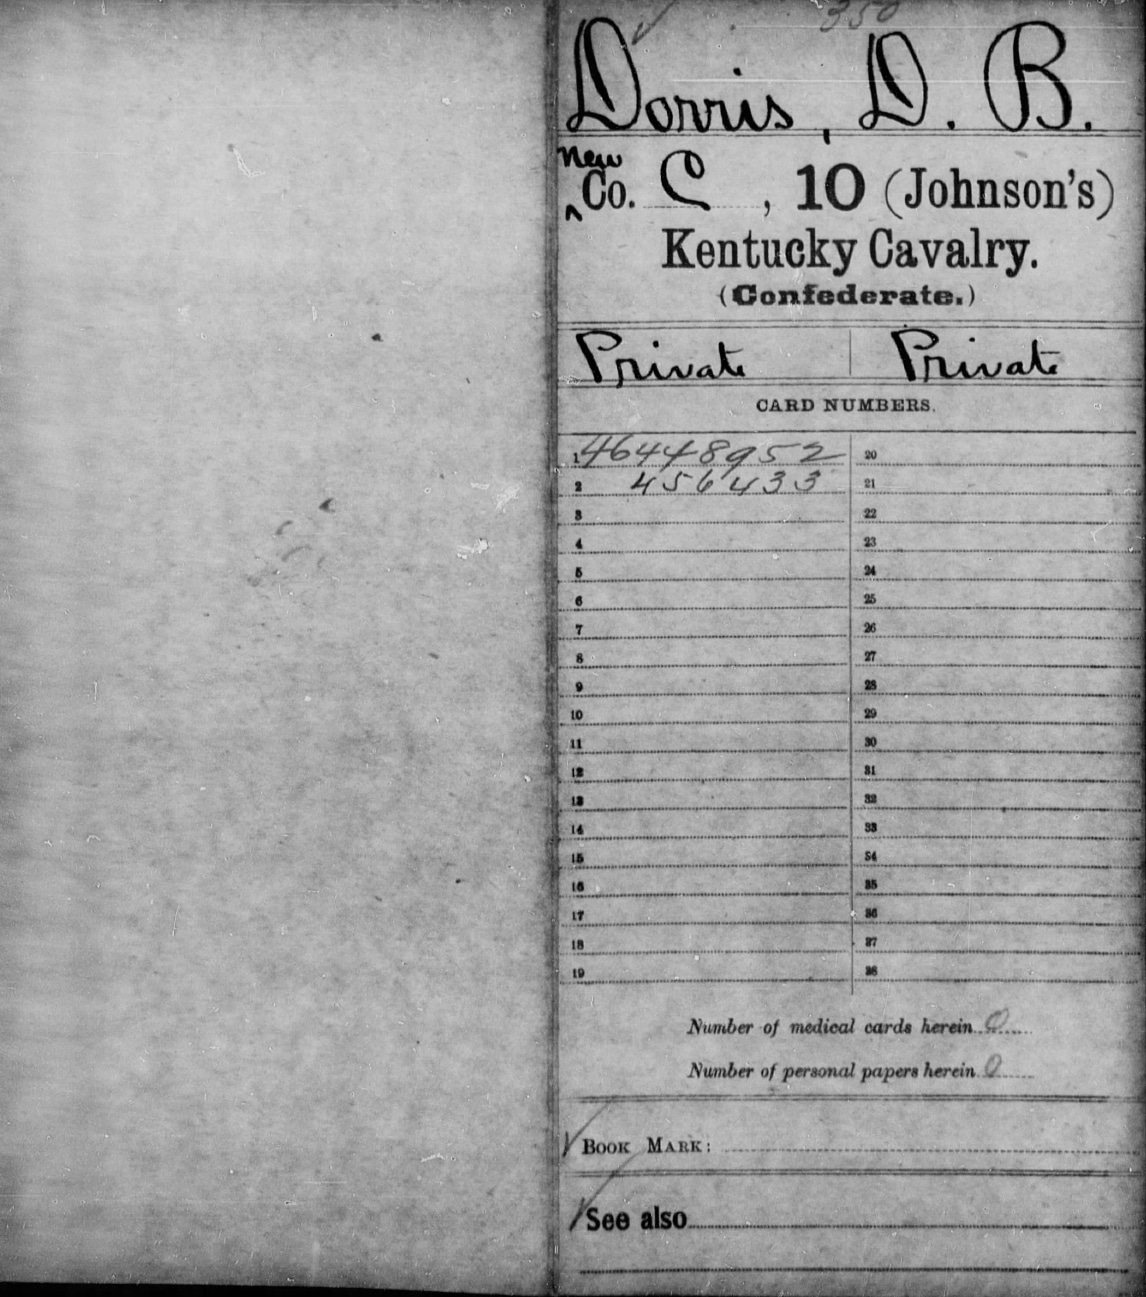 350
Dorris, D. B.
New
^Co. C, 10 (Johnson's)
Kentucky Cavalry.
(Confederate.)
Private Private
CARD NUMBERS.
1 46448952 20
2 456433 21
3 22
4 23
5 24
6 25
7 26
8 27
9 28
10 29
11 30
12 31
13 32
14 33
15 34
16 35
17 36
18 37
19 38
Number of medical cards herein 0
Number of personal papers herein 0
BOOK MARK:
See also